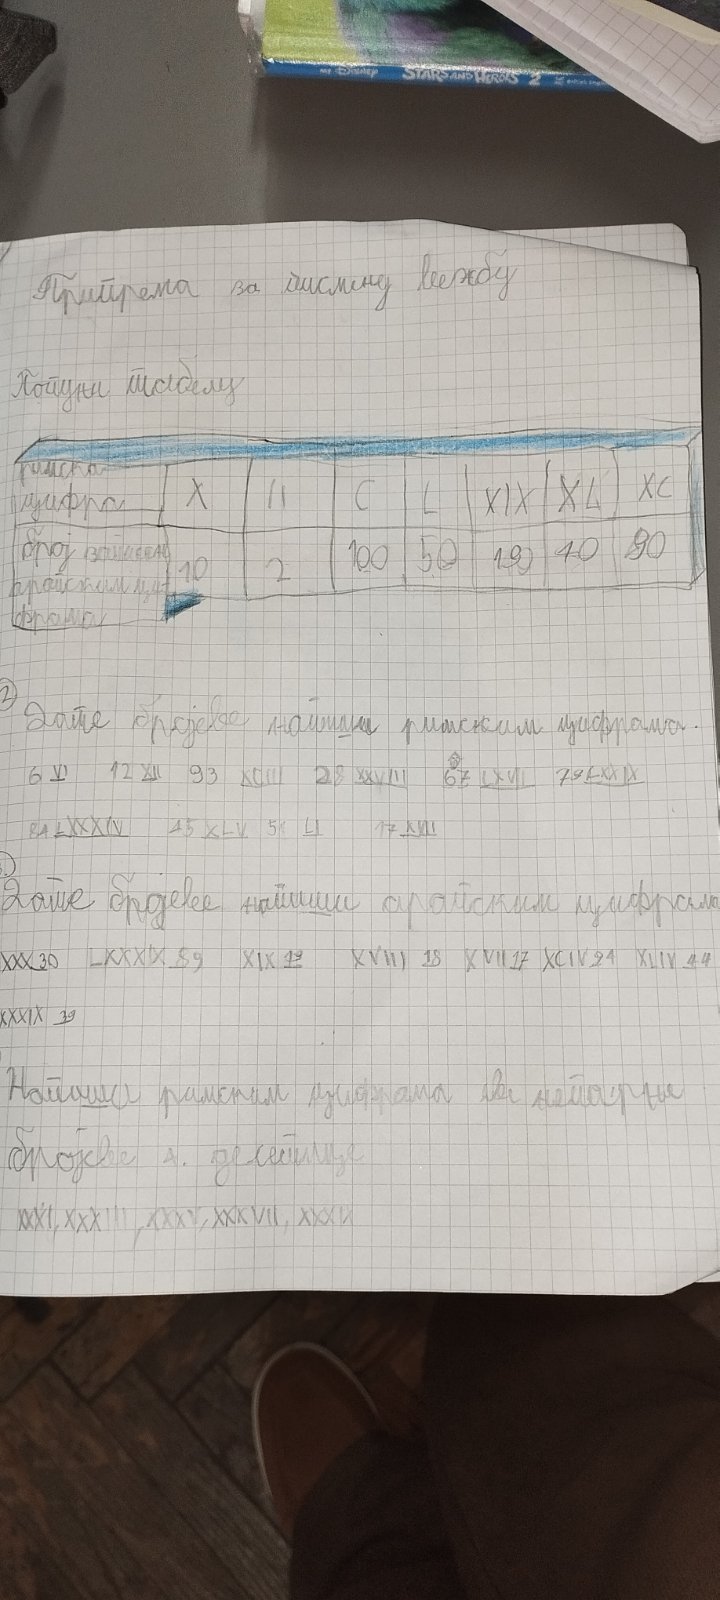 MY DISNEY STARS AND HEROES 2
Припрема за писмену вежбу
Попуни табелу
римска цифра X II C L XIX XL XC
број записан арапским цифрама 10 2 100 50 190 40 90
2 Дате бројеве напиши римским цифрама.
6 VI 12 XII 93 XCIII 28 XXVIII 67 LXVII 79 LXXIX
84 LXXXIV 45 XLV 51 LI 17 XVII
Дате бројеве напиши арапским цифрама
XXX 30 LXXXIX 89 XIX 19 XVIII 18 XVII 17 XCIV 94 XLIV 44
XXXIX 39
Напиши римским цифрама све непарне
бројеве 4. десетице
XXXI, XXXIII, XXXV, XXXVII, XXXIX